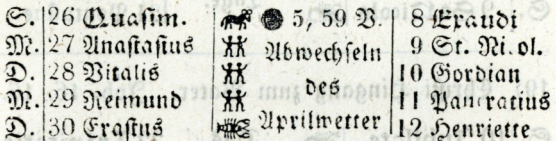 S. 26 Quasim. 5, 59 V. 8 Exaudi
M. 27 Anastasius Abwechseln 9 St. Ni. ol.
D. 28 Vitalis des 10 Gordian
M. 29 Reimund Aprilwetter 11 Pancratius
D. 30 Erastus 12 Henriette